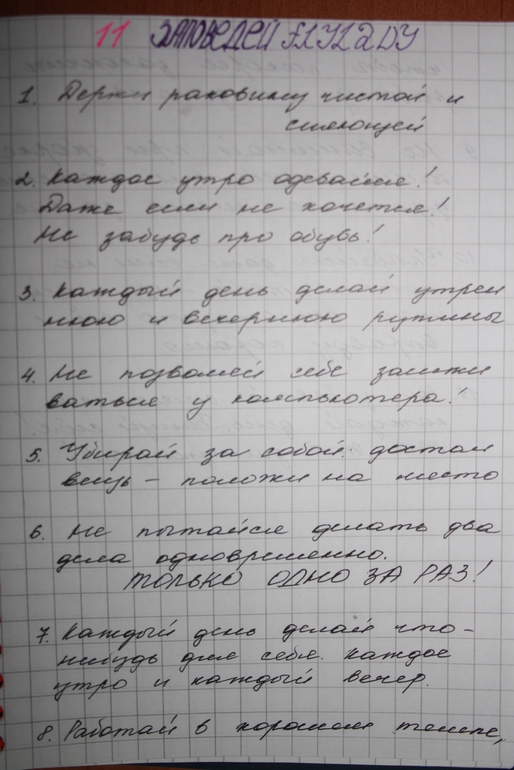 11 ЗАПОВЕДЕЙ FLYLADY
1. Держи раковину чистой и
сияющей
2. Каждое утро одевайся!
Даже если не хочется!
Не забудь про обувь!
3. Каждый день делай утрен
нюю и вечернюю рутины
4. Не позволяй себе засижи
ваться у компьютера!
5. Убирай за собой: достал
вещь – положи на место
6. Не пытайся делать два
дела одновременно.
ТОЛЬКО ОДНО ЗА РАЗ!
7. Каждый день делай что-
нибудь для себя. Каждое
утро и каждый вечер.
8. Работай в хорошем темпе,